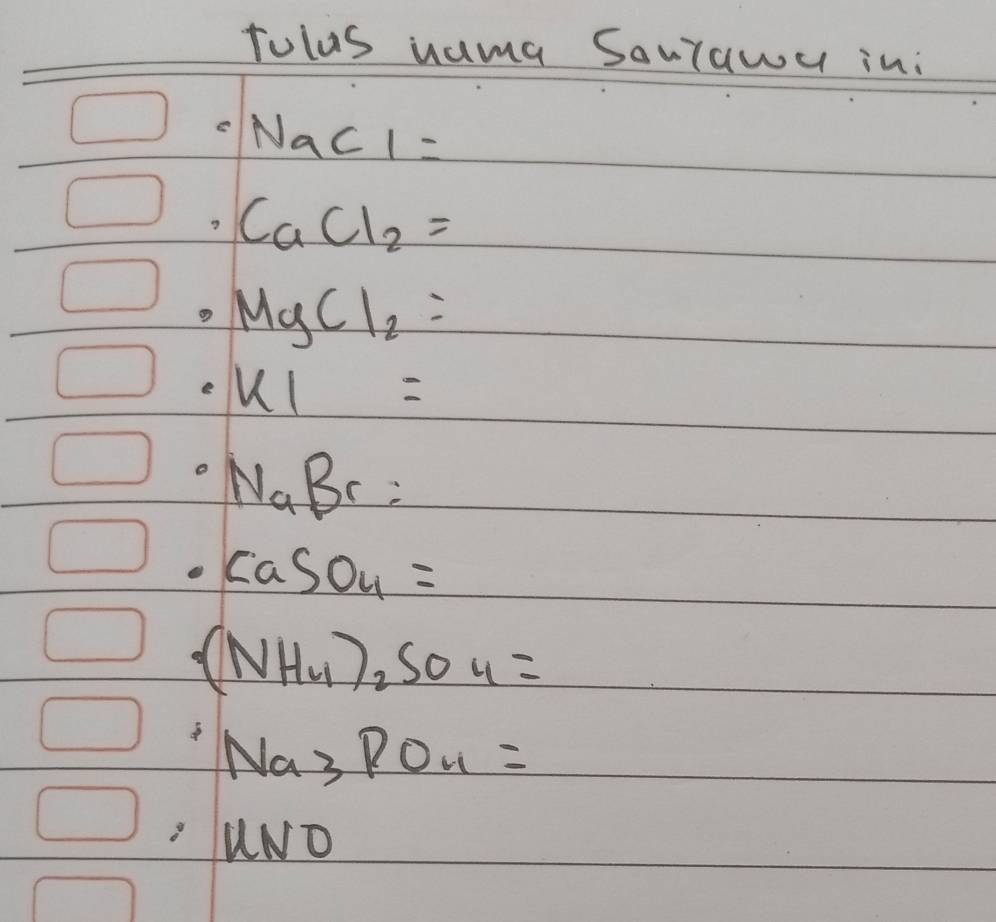 tulus nama Sonyawa ini
• NaCl =
• CaCl2 =
• MgCl2 =
• KI =
• NaBr =
• CaSO4 =
• (NH4)2SO4 =
• Na3PO4 =
• KNO